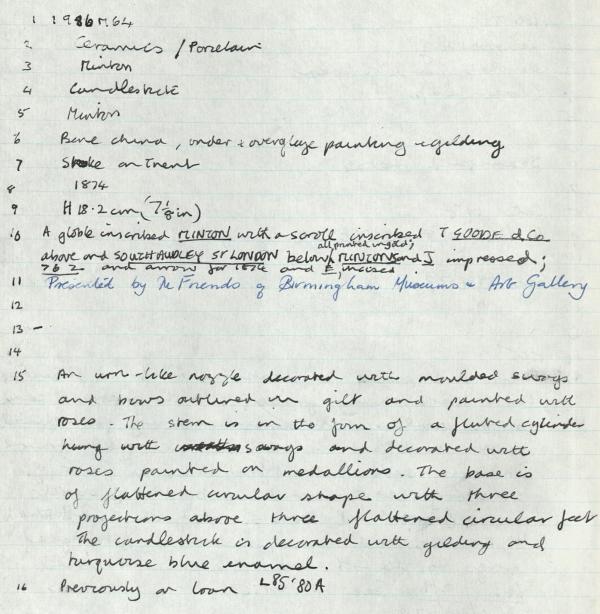 1 1986 M.64
2 Ceramics / Porcelain
3 Minton
4 Candlestick
5 Minton
6 Bone china, under & overglaze painting & gilding
7 Stoke on Trent
8 1874
9 H 18.2cm (7 1/8 in)
10 A globe inscribed MINTON with a scroll inscribed T GOODE & Co
above and SOUTH AUDLEY ST LONDON below, all printed in gold; MINTONS and J impressed;
762 and arrow for 1874 and E, incised
11 Presented by the Friends of Birmingham Museums & Art Gallery
12
13 –
14
15 An urn-like nozzle decorated with moulded swags
and bows outlined in gilt and painted with
roses. The stem is in the form of a fluted cylinder
hung with swags and decorated with
roses painted on medallions. The base is
of flattened circular shape with three
projections above three flattened circular feet
The candlestick is decorated with gilding and
turquoise blue enamel.
16 Previously on loan L85'80A